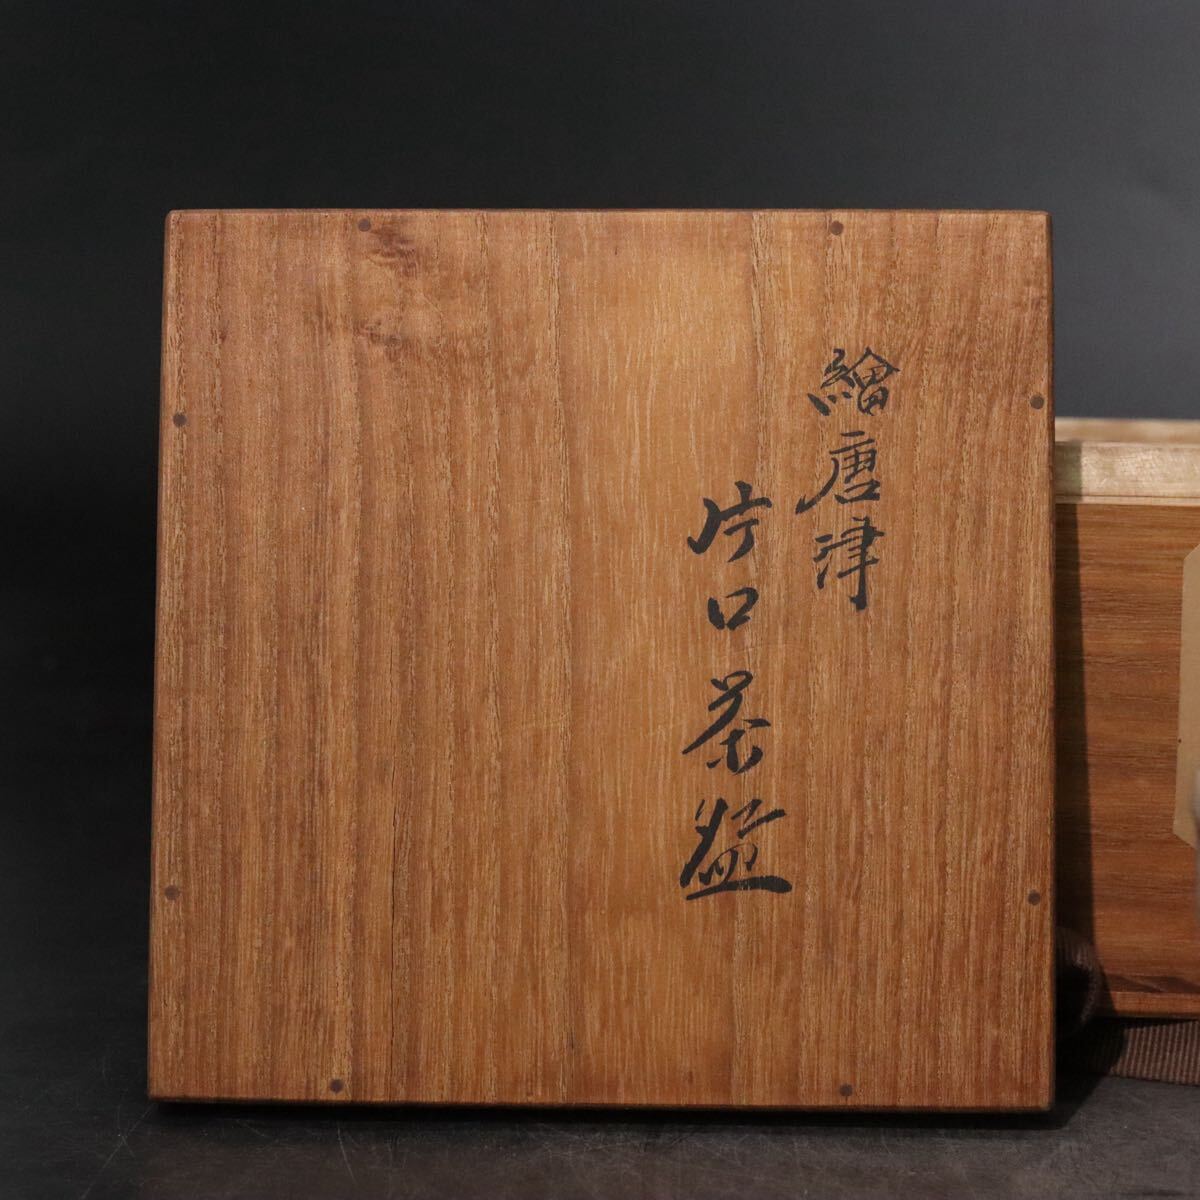 繪唐津
片口茶盌